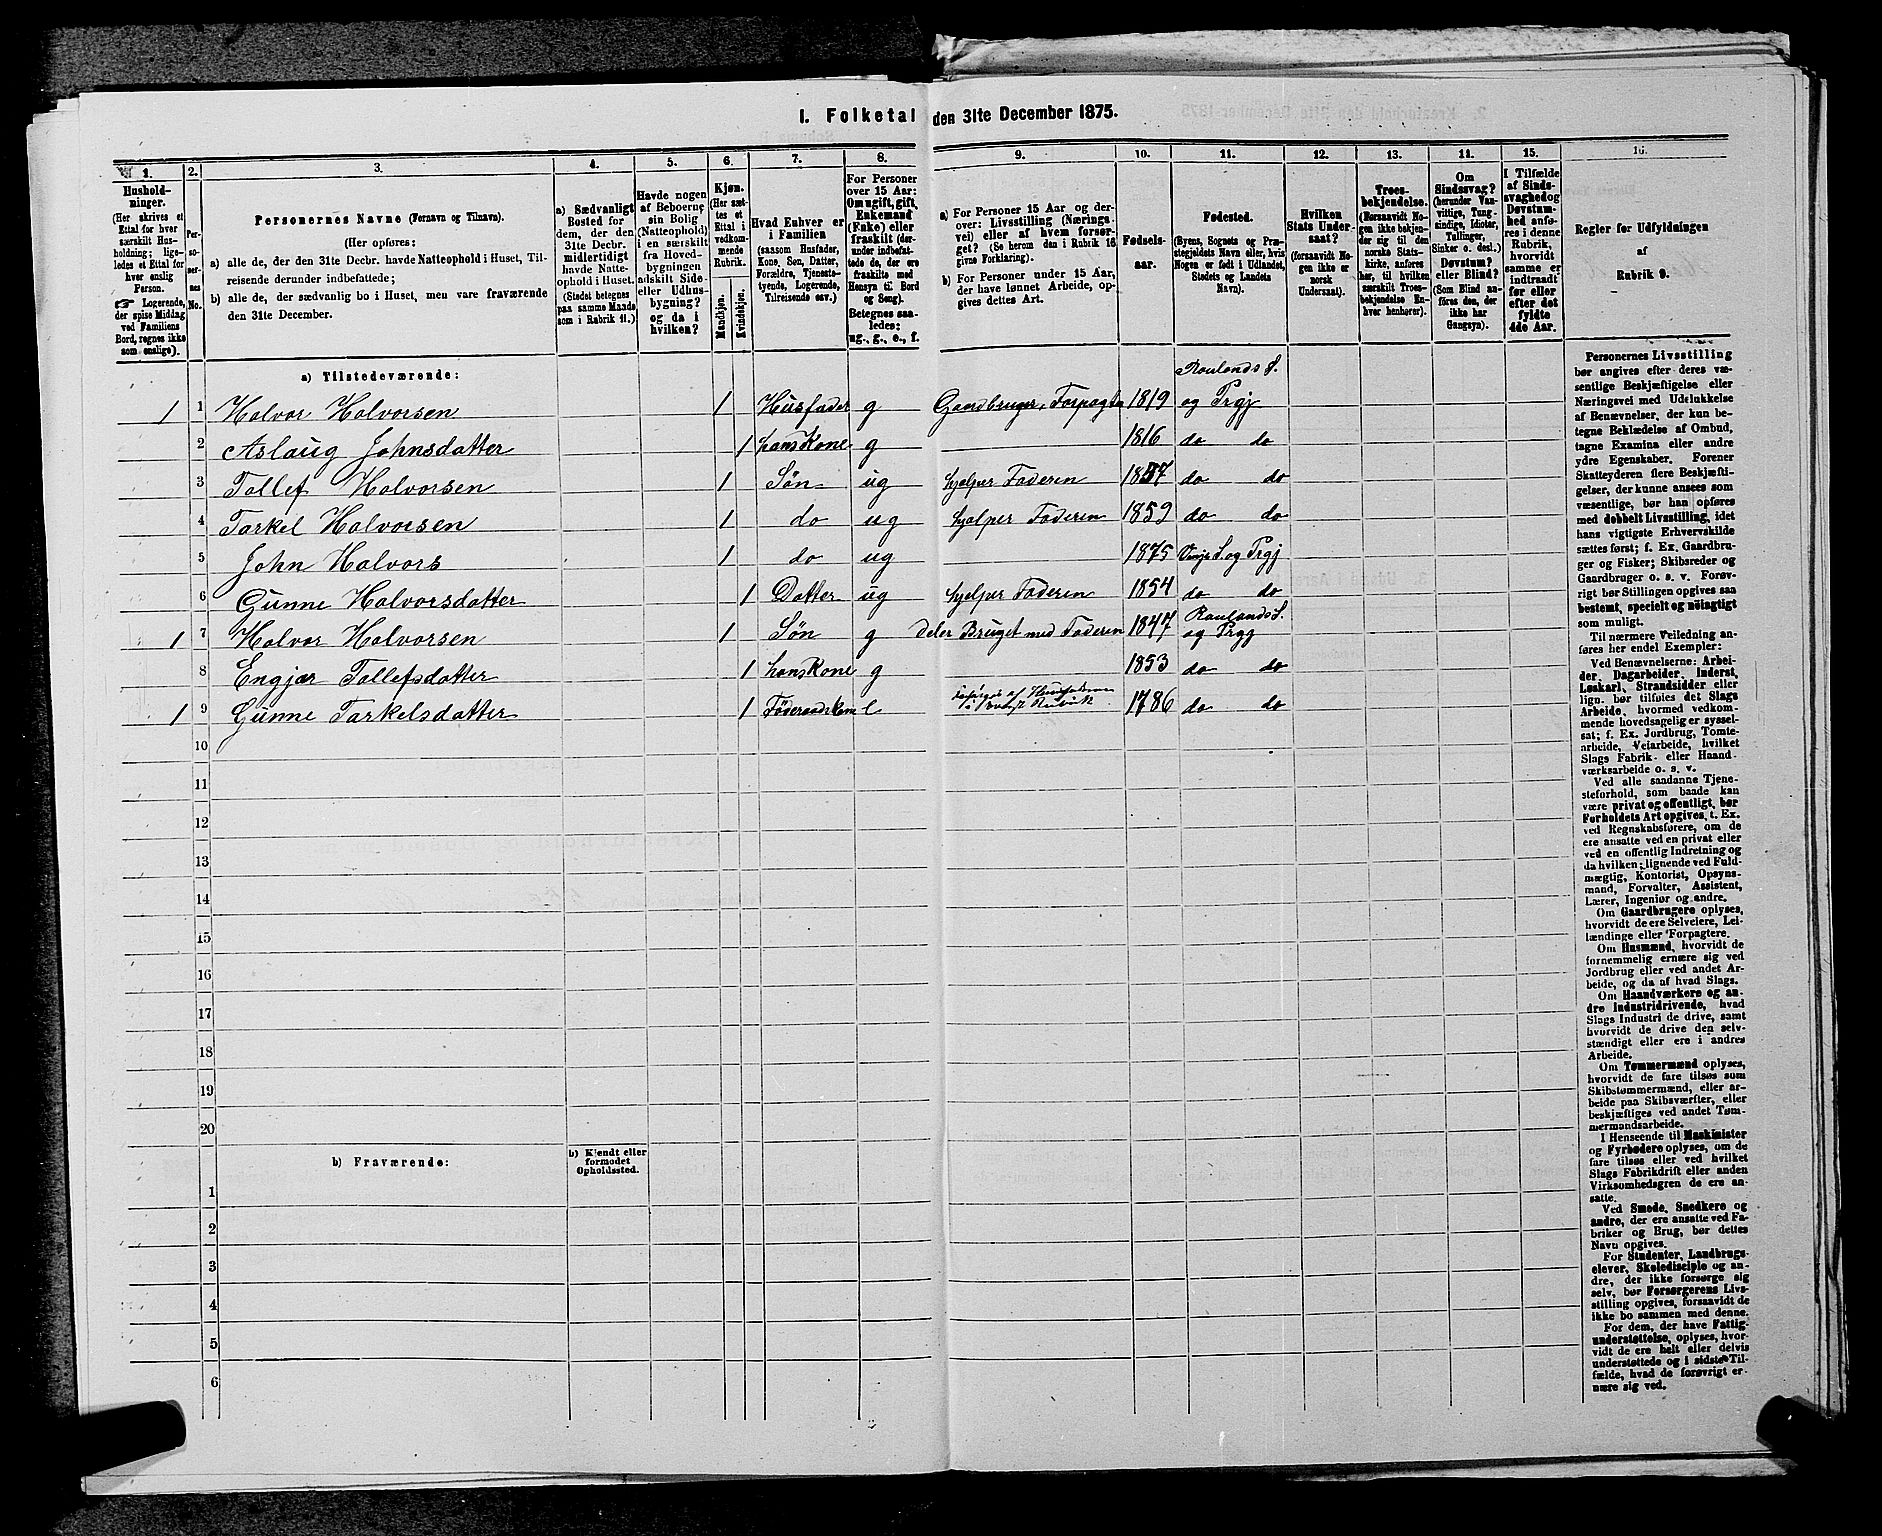 I. Folketal den 31te December 1875.
1. 2. 3. 4. 5. 6. 7. 8. 9. 10. 11. 12. 13. 11. 15. 16.
Hushold-
ninger.
(Her skrives et
Ettal for hver
særskilt Hus-
holdning; lige-
ledes et Ettal for
hver enslig
Person.
☞ Logerende,
der spise Middag
ved Familiens
Bord, regnes ikke
som enslige).
Per-
so-
ner-
nes
No.
Personernes Navne (Fornavn og Tilnavn).
(Her opføres:
a) alle de, der den 31te Decbr. havde Natteophold i Huset, Til-
reisende derunder indbefattede;
b) alle de, der sædvanlig bo i Huset, men vare fraværende
den 31te December.
a) Sædvanligt
Bosted for
dem, der den
31te Decbr.
midlertidigt
havde Natte-
ophold i Huset.
(Stedet betegnes
paa samme Maade
som i Rubrik 11.)
Havde nogen
af Beboerne
sin Bolig
(Natteophold)
i en særskilt
fra Hoved-
bygningen
adskilt Side-
eller Udhus-
bygning?
og da i
hvilken?
Kjøn.
(Her sæt-
tes et
Ettal i
vedkom-
mende
Rubrik.
Mandkjøn.
Kvindekjøn.
Hvad Enhver er
i Familien
(saasom Husfader,
Kone, Søn, Datter,
Forældre, Tjeneste-
tyende, Logerende,
Tilreisende osv.)
For Personer
over 15 Aar:
Om ugift, gift,
Enkemand
(Enke) eller
fraskilt (der-
under indbefat-
tede de, der
ere fraskilte med
Hensyn til Bord
og Seng).
Betegnes saa-
ledes:
ug., g., e., f.
a) For Personer 15 Aar og der-
over: Livsstilling (Nærings-
vei) eller af hvem forsør-
get? (Se herom den i Rubrik 16
givne Forklaring).
b) For Personer under 15 Aar,
der have lønnet Arbeide, op-
gives dettes Art.
Fødsels-
aar.
Fødested.
(Byens, Sognets og Præ-
stegjeldets Navn eller, hvis
Nogen er født i Udlandet,
Stedets og Landets
Navn).
Hvilken
Stats Under-
saat?
(forsaavidt No-
gen ikke er
norsk
Undersaat).
Troes-
bekjendelse.
(Forsaavidt No-
gen ikke bekjen-
der sig til den
norske Stats-
kirke, anføres
her, til hvilken
særskilt Troes-
bekjendelse En-
hver henhører).
Om
Sindssvag?
(herunder Van-
vittige, Tung-
sindige, Idioter,
Tullinger,
Sinker o. desl.)
Døvstum?
eller Blind?
(Som Blind an-
føres den, der
ikke har
Gangsyn).
I Tilfælde
af Sinds-
svaghed og
Døvstum-
hed anfø-
res i denne
Rubrik,
hvorvidt
samme er
indtraadt
før eller
efter det
fyldte
4de Aar.
Regler for Udfyldningen
af
Rubrik 9.
a) Tilstedeværende:
Raulands S.
1 1 Halvor Halvorsen 1 Husfader g Gaardbruger, Forpagter 1819 og Prgj
2 Aslaug Johnsdatter 1 hans Kone g 1816 do do
3 Tallef Halvorsen 1 Søn ug hjelper Faderen 1857 do do
4 Tarkel Halvorsen 1 do ug hjelper Faderen 1859 do do
5 John Halvors 1 do ug 1875 Vinje S. og Prgj
6 Gunne Halvorsdatter 1 Datter ug hjelper Faderen 1854 do do
Raulands S.
1 7 Halvor Halvorsen 1 Søn g deler Bruget med Faderen 1847 og Prgj
8 Engjær Tallefsdatter 1 hans Kone g 1853 do do
1 9 Gunne Tarkelsdatter 1 e 1786 do do
10
11
12
13
14
15
16
17
18
19
20
b) Fraværende:
b) Kjendt eller
formodet
Opholdssted.
1
2
3
4
5
6
Personernes Livsstilling
bør angives efter deres væ-
sentlige Beskjæftigelse eller
Næringsvei med Udelukkelse
af Benævnelser, der kun be-
tegne Beklædelse af Ombud,
tagne Examina eller andre
ydre Egenskaber. Forener
Skatteyderen flere Beskjæfti-
gelser, der kunne ansees som
væsentlige, bør han opføres
med dobbelt Livsstilling, idet
hans vigtigste Erhvervskilde
sættes først; f. Ex. Gaardbru-
ger og Fisker; Skibsreder og
Gaardbruger o. s. v. Forøv-
rigt bør Stillingen opgives saa
bestemt, specielt og nöiagtigt
som muligt.
Til nærmere Veiledning an-
føres her endel Exempler:
Ved Benævnelserne: Arbei-
der, Dagarbeider, Inderst,
Løskarl, Strandsidder eller
lign. bør tilføies det Slags
Arbeide, hvormed vedkom-
mende hovedsagelig er syssel-
sat; f. Ex. Jordbrug, Tomte-
arbeide, Veiarbeide, hvilket
Slags Fabrik- eller Haand-
værksarbeide o. s. v.
Ved alle saadanne Tjene-
steforhold, som baade kan
være privat og offentligt, bør
Forholdets Art opgives, t. Ex.
ved Regnskabsførere, om de
ere ansatte ved en privat eller
ved en offentlig Indretning og
da hvilken; lignende ved Fuld-
mægtig, Kontorist, Opsyns-
mand, Forvalter, Assistent,
Lærer, Ingeniør og andre.
Om Gaardbrugere oplyses,
hvorvidt de ere Selveiere, Lei-
lændinge eller Forpagtere.
Om Husmænd, hvorvidt de
fornemmelig ernære sig ved
Jordbrug eller ved andet Ar-
beide, og da af hvad Slags.
Om Haandværkere og an-
dre industridrivende, hvad
Slags Industri de drive, samt
hvorvidt de drive den selv-
stændigt eller ere i andres
Arbeide.
Om Tømmermænd oplyses,
hvorvidt de fare tilsøs som
Skibstømmermænd, eller ar-
beide paa Skibsværfter, eller
beskjæftiges ved andet Tøm-
mermandsarbeide.
I Henseende til Maskinister
og Fyrbødere oplyses, om de
fare tilsøs eller ved hvilket
Slags Fabrikdrift eller anden
Virksomhedsgren de ere an-
satte.
Ved Smede, Snedkere og
andre, der ere ansatte ved Fa-
briker og Brug, bør dettes
Navn opgives.
For Studenter, Landbrugs-
elever, Skoledisciple og an-
dre, der ikke forsørge sig
selv, bør Forsørgerens Livs-
stilling opgives, forsaavidt de
ikke bo sammen med denne.
For dem, der have Fattig-
understøttelse, oplyses, hvor-
vidt de ere helt eller delvis
understøttede og i sidste Til-
fælde, hvad de forøvrigt er-
nære sig ved.